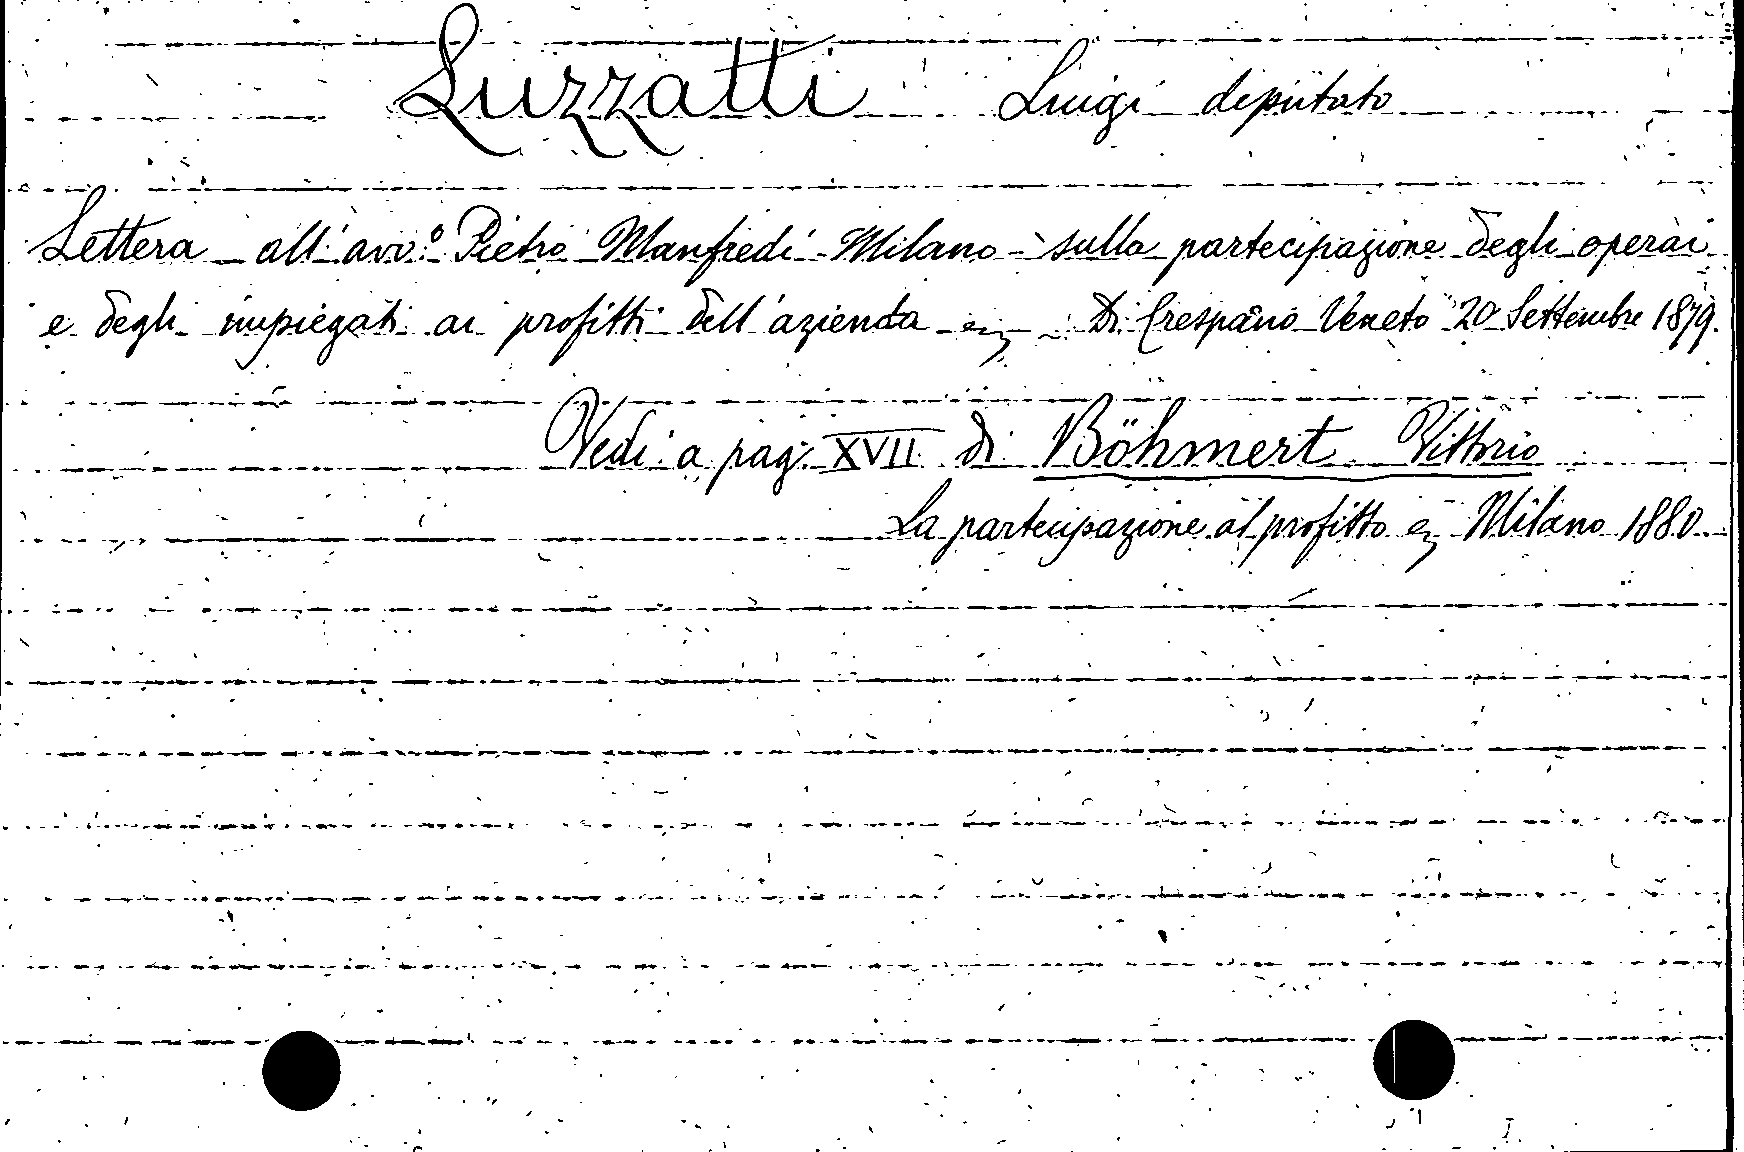 Luzzatti Luigi deputato
Lettera all'avv.º Pietro Manfredi - Milano - sulla partecipazione degli operai
e degli impiegati ai profitti dell'azienda - Di Crespano Veneto 20 Settembre 1879.
Vedi a pag. XVII di Böhmert Vittorio
La partecipazione al profitto Milano 1880.